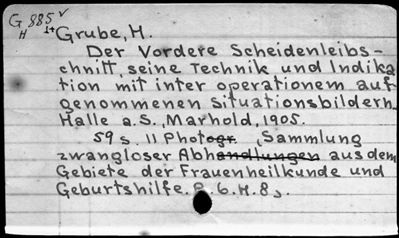 G 885 ✓
H 1+ Grube, H.
Der Vordere Scheidenleibs-
chnitt, seine Technik und Indika
tion mit inter operationem auf
genommenen Situationsbildern.
Halle a.S., Marhold, 1905.
59 s. 11 Photogr. , Sammlung
zwangloser Abhandlungen aus dem
Gebiete der Frauenheilkunde und
Geburtshilfe. 6. H. 8,.